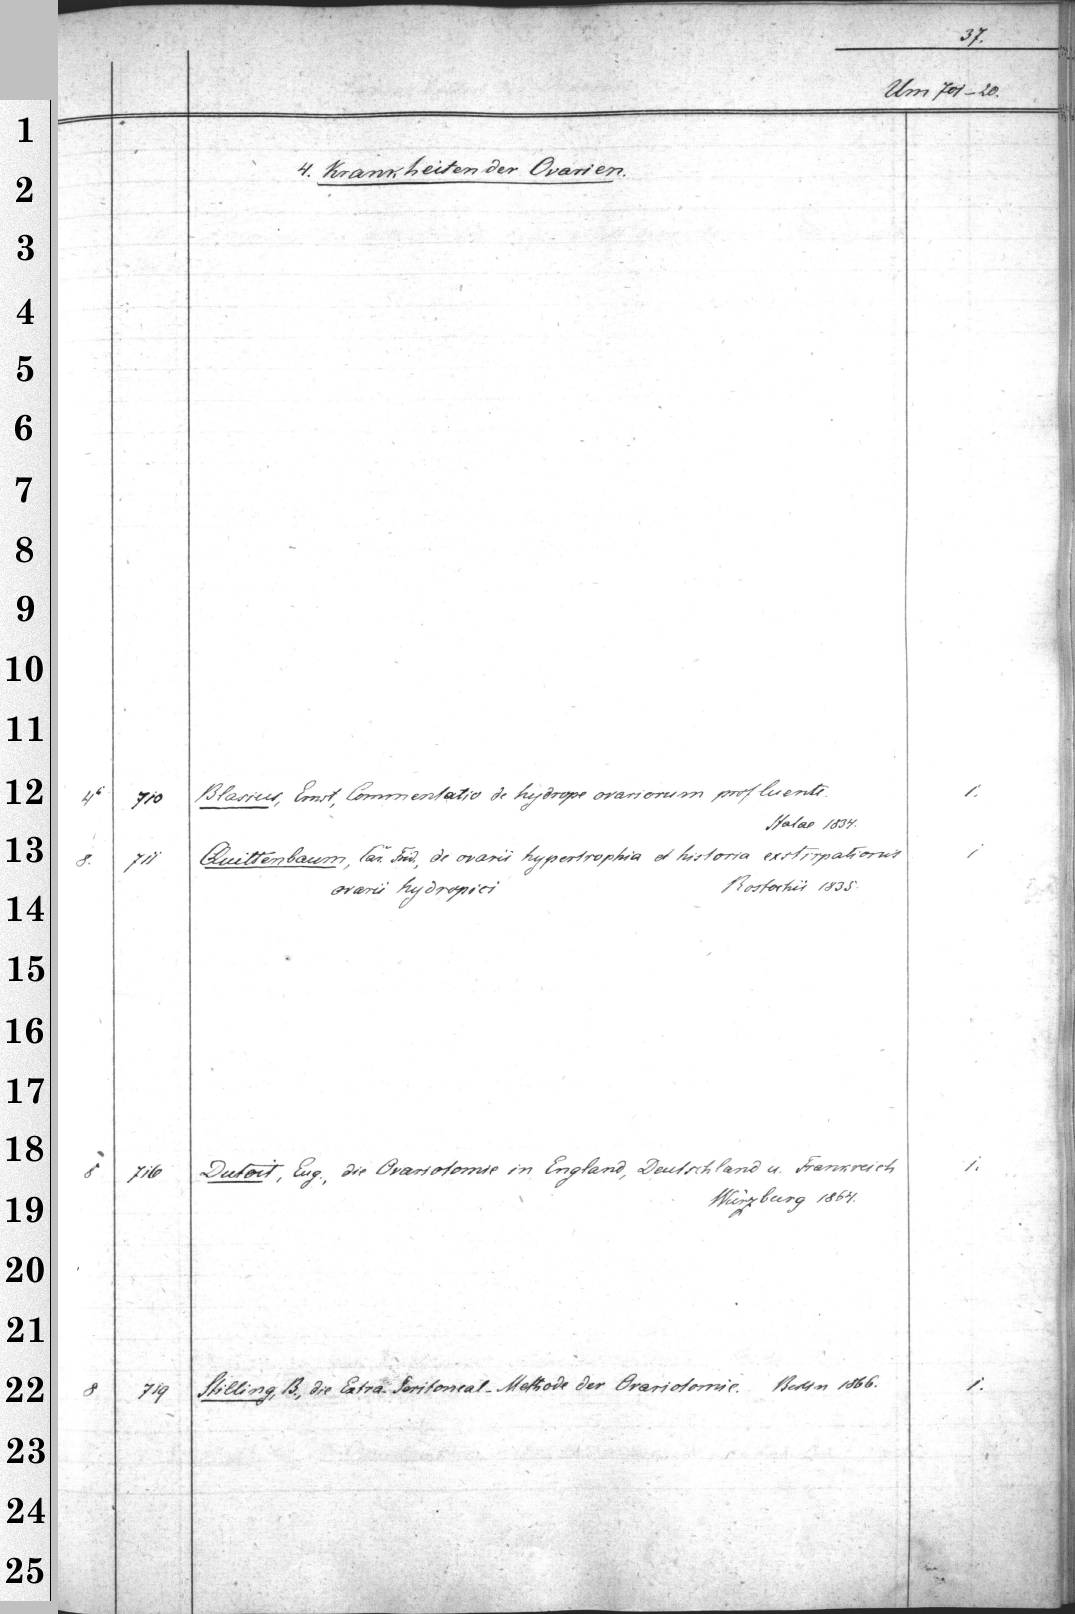 37.
Um 701-20.
4. Krankheiten der Ovarien.
1
2
3
4
5
6
7
8
9
10
11
12 4° 710 Blasius, Ernst, Commentatio de hydrope ovariorum profluente. 1.
Halae 1834.
13 8. 711 Quittenbaum, Car. Frid., de ovarii hypertrophia et historia exstirpationis 1
ovarii hydropici Rostochii 1835.
14
15
16
17
18 8 716 Dutoit, Eug., die Ovariotomie in England, Deutschland u. Frankreich 1.
Würzburg 1864.
19
20
21
22 8 719 Stilling, B., die Extra-Peritoneal-Methode der Ovariotomie. Berlin 1866. 1.
23
24
25